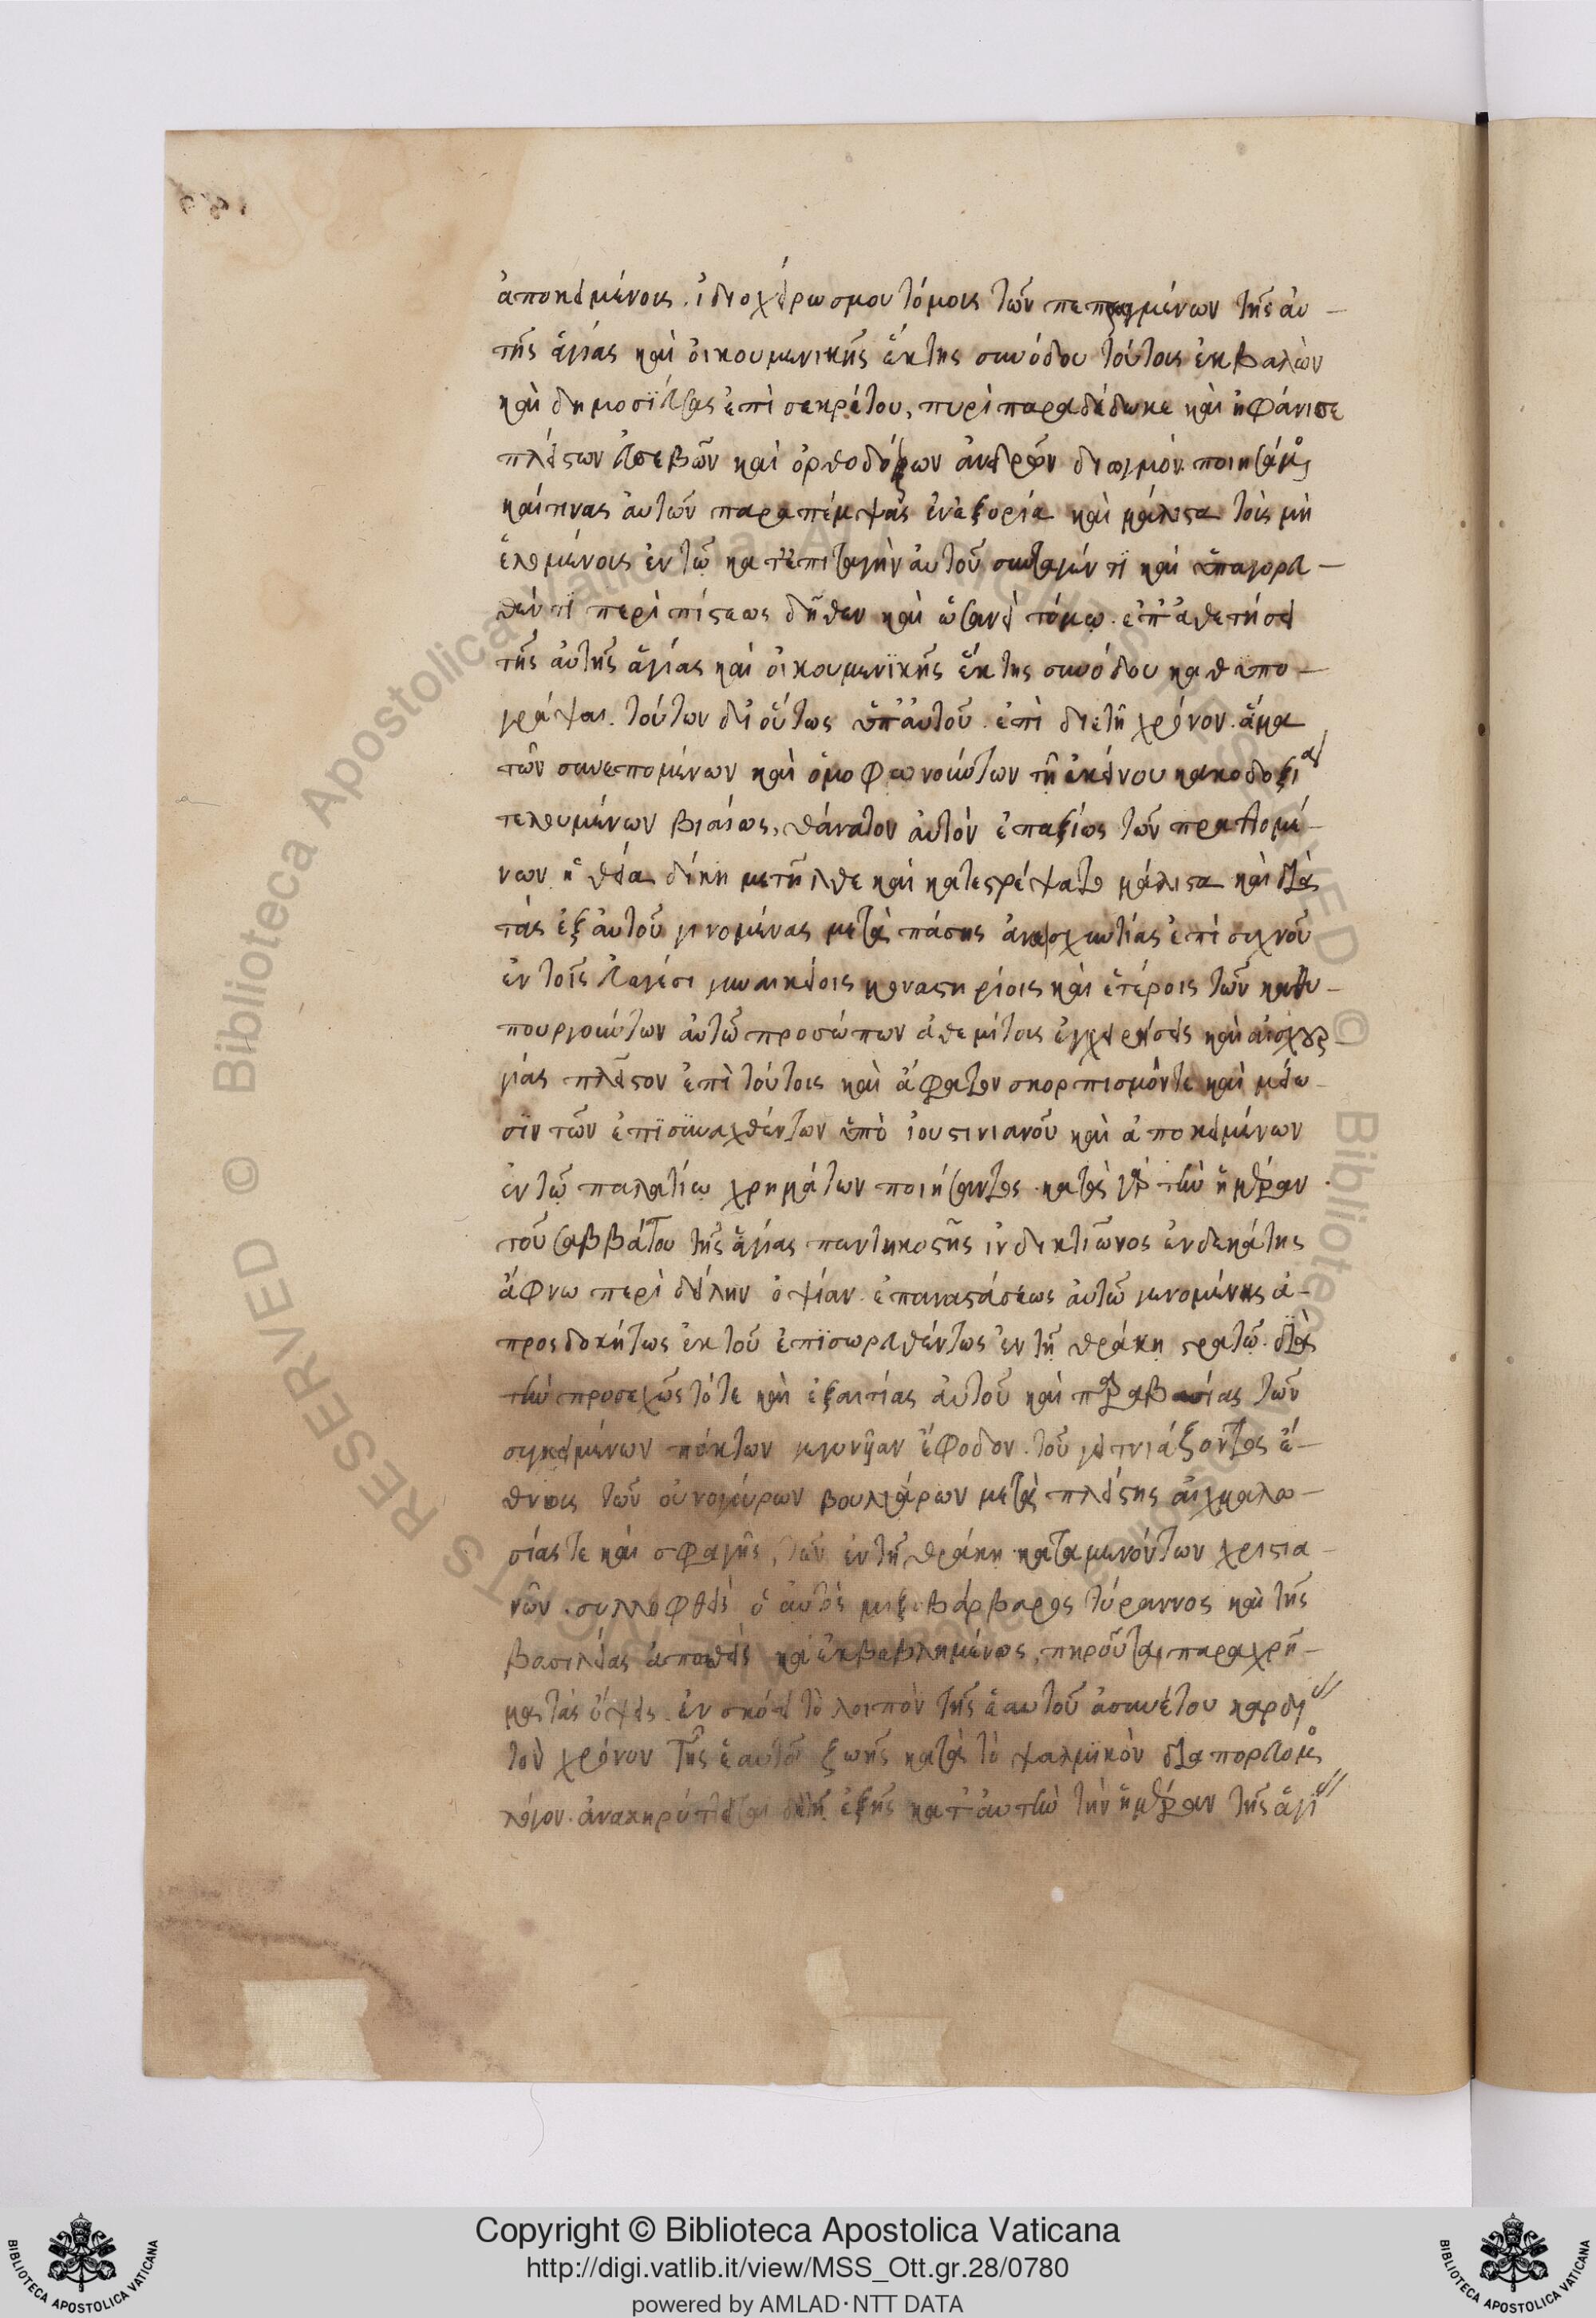 ἀποκειμένους ἰδιοχείρως μου τόμους τῶν πεπραγμένων τῆς αὐ-
τῆς ἁγίας καὶ οἰκουμενικῆς ἕκτης συνόδου τούτους ἐκβαλὼν
καὶ δημοσιεύσας ἐπὶ σεκρέτου, πυρὶ παραδέδωκε καὶ ἠφάνισε
πλείστων εὐσεβῶν καὶ ὀρθοδόξων ἀνδρῶν διωγμὸν ποιησάμενος
καί τινας αὐτῶν παραπέμψας ἐν ἐξορίᾳ καὶ μάλιστα τοὺς μὴ
ἑλομένους ἐν τῷ κατ' ἐπιταγὴν αὐτοῦ συνταγέντι καὶ ὑπαγορευ-
θέντι περὶ πίστεως δῆθεν καὶ ὡσανεὶ τόμῳ ἐπ' ἀθετήσει
τῆς αὐτῆς ἁγίας καὶ οἰκουμενικῆς ἕκτης συνόδου καθυπο-
γράψαι. τούτων δὲ οὕτως ὑπ' αὐτοῦ ἐπὶ διετῆ χρόνον ἅμα
τῶν συνεπομένων καὶ ὁμοφωνούντων τῇ ἐκείνου κακοδοξίᾳ
τελουμένων βιαίως, θάνατον αὐτὸν ἐπαξίως τῶν πραττομέ-
νων ἡ θεία δίκη μετῆλθε καὶ κατεστρέψατο μάλιστα καὶ διὰ
τὰς ἐξ αὐτοῦ γινομένας μετὰ πάσης ἀναισχυντίας ἐπὶ συχνοῦ
ἐν τοῖς εὐαγέσι γυναικείοις μοναστηρίοις καὶ ἑτέροις τῶν καθυ-
πουργούντων αὐτῷ προσώπων ἀθεμίτους ἐγχειρήσεις καὶ αἰσχουρ
γίας πλεῖστον ἐπὶ τούτοις καὶ ἄφατον σκορπισμόν τε καὶ μείω-
σιν τῶν ἐπισυναχθέντων ὑπὸ ἰουστινιανοῦ καὶ ἀποκειμένων
ἐν τῷ παλατίῳ χρημάτων ποιήσαντος. κατὰ γὰρ τὴν ἡμέραν
τοῦ σαββάτου τῆς ἁγίας πεντηκοστῆς ἰνδικτιῶνος ἑνδεκάτης
ἄφνω περὶ δείλην ὀψίαν ἐπαναστάσεως αὐτῷ γενομένης ἀ-
προσδοκήτως ἐκ τοῦ ἐπισωρευθέντος ἐν τῇ θράκῃ στρατῷ διὰ
τὴν προσεχῶς τότε καὶ ἐξ αἰτίας αὐτοῦ καὶ παραβασίας τῶν
συγκειμένων πάκτων γεγονυῖαν ἔφοδον τοῦ γειτνιάζοντος ἔ-
θνους τῶν οὐνογούρων βουλγάρων μετὰ πλείστης αἰχμαλω-
σίας τε καὶ σφαγῆς, τῶν ἐν τῇ θράκῃ καταμενόντων χριστια-
νῶν. συλληφθεὶς ὁ αὐτὸς μιξοβάρβαρος τύραννος καὶ τῆς
βασιλείας ἀπωθεὶς καὶ ἐκβεβλημένος, πηροῦται παραχρῆ-
μα τὰς ὄψεις. ἐν σκότει τὸ λοιπὸν τῆς ἑαυτοῦ ἀσυνέτου καρδίας
τὸν χρόνον τῆς ἑαυτοῦ ζωῆς κατὰ τὸ ψαλμικὸν διαπορευόμενος
λόγιον. ἀνακηρύττεται δὲ τῇ ἑξῆς κατ' αὐτὴν τὴν ἡμέραν τῆς ἁγίας
Copyright © Biblioteca Apostolica Vaticana
http://digi.vatlib.it/view/MSS_Ott.gr.28/0780
powered by AMLAD·NTT DATA